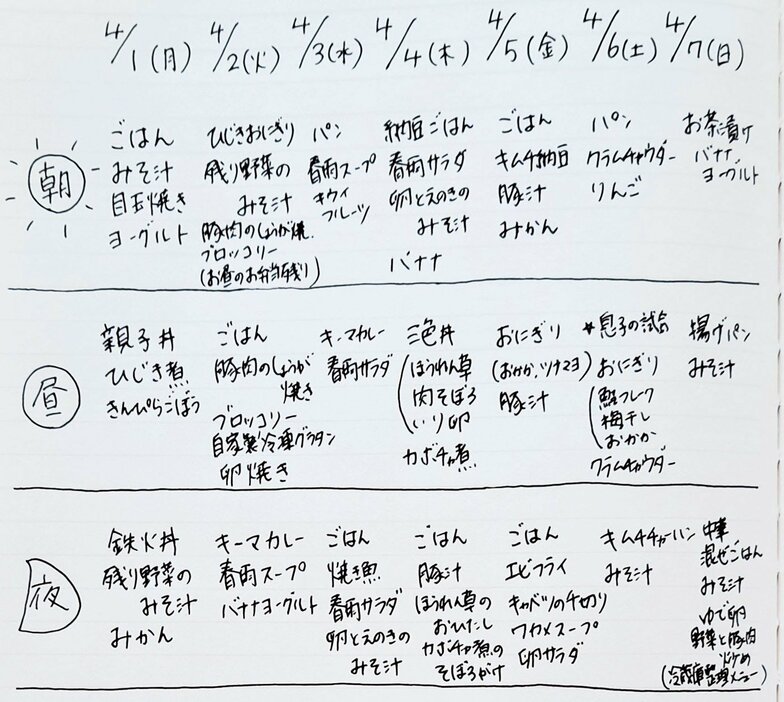 4/1(月) 4/2(火) 4/3(水) 4/4(木) 4/5(金) 4/6(土) 4/7(日)
朝
ごはん
みそ汁
目玉焼き
ヨーグルト
ひじきおにぎり
残り野菜の
みそ汁
豚肉のしょうが焼
ブロッコリー
(お昼のお弁当残り)
パン
春雨スープ
キウイ
フルーツ
納豆ごはん
春雨サラダ
卵とえのきの
みそ汁
バナナ
ごはん
キムチ納豆
豚汁
みかん
パン
クラムチャウダー
りんご
お茶漬け
バナナ
ヨーグルト
昼
親子丼
ひじき煮
きんぴらごぼう
ごはん
豚肉のしょうが
焼き
ブロッコリー
自家製冷凍グラタン
卵焼き
キーマカレー
春雨サラダ
三色丼
(ほうれん草
肉そぼろ
いり卵
カボチャ煮
おにぎり
(おかか、ツナマヨ)
豚汁
*息子の試合
おにぎり
(鮭フレーク
梅干し
おかか
クラムチャウダー
揚げパン
みそ汁
夜
鉄火丼
残り野菜の
みそ汁
みかん
キーマカレー
春雨スープ
バナナヨーグルト
ごはん
焼き魚
春雨サラダ
卵とえのきの
みそ汁
ごはん
豚汁
ほうれん草の
おひたし
カボチャ煮の
そぼろがけ
ごはん
エビフライ
キャベツの千切り
ワカメスープ
卵サラダ
キムチチャーハン
みそ汁
中華
混ぜごはん
みそ汁
ゆで卵
野菜と豚肉
炒め
(冷蔵庫整理メニュー)